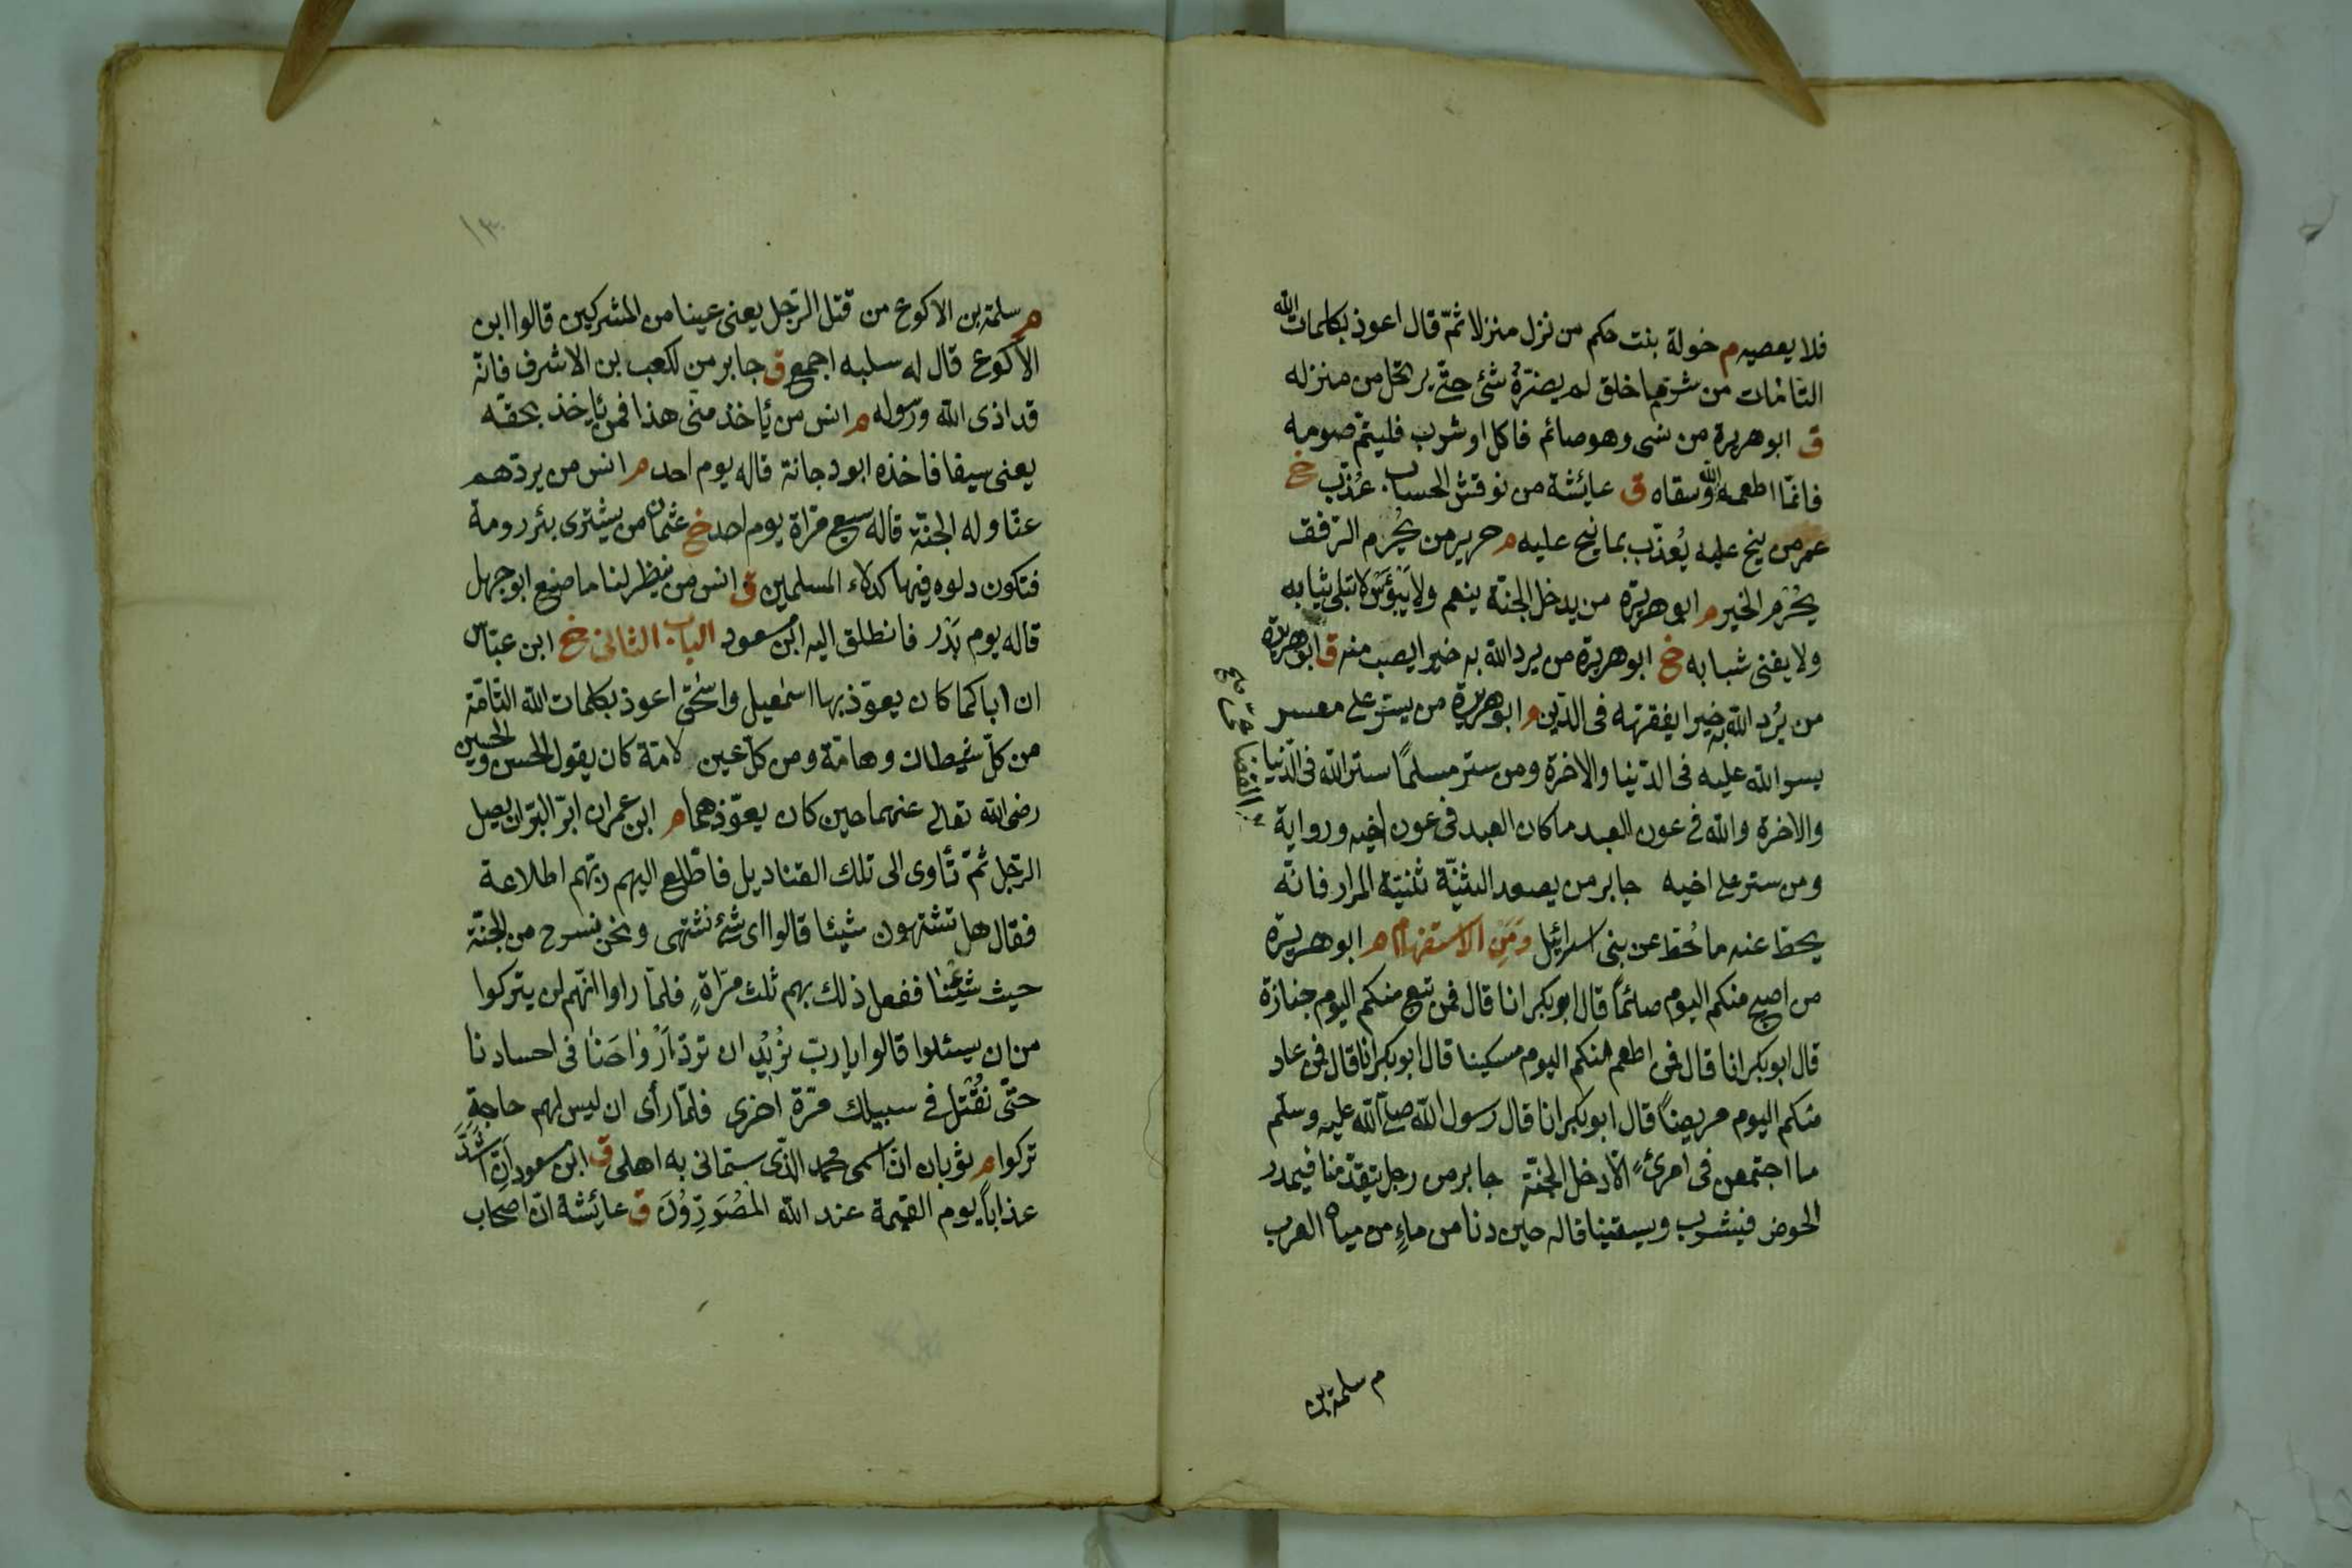 فلا يعصيه م خولة بنت حكم من نزل منزلا ثمّ قال اعوذ بكلمات الله
التامّات من شرّ ما خلق لم يضرّهُ شئ حتّى يرتحل من منزله
ق ابو هريرة من نسى وهو صائم فاكل او شرب فليتمّ صومه
فانّما اطعمه الله وسقاه ق عايشة من نوقش الحساب عُذّب خ
عمر من ينح عليه يُعذّب بما نيح عليه م جرير من يُحْرَم الرفق
يُحْرَم الخير م ابو هريرة من يدخل الجنّة ينعم ولا يَبْؤَس لا تبلى ثيابه
ولا يفنى شبابه خ ابو هريرة من يرد الله به خيرا يصب منه ق ابو هريرة
من يُرد الله به خيرا يفقهه فى الدّين م ابو هريرة من يسّر على معسر
يسر الله عليه فى الدّنيا والاخرة ومن ستر مسلمًا ستر الله فى الدّنيا
والاخرة والله فى عون العبد ما كان العبد فى عون اخيه ورواية
ومن ستر على اخيه جابر من يصعد الثنيّة ثنيّة المرار فانّه
يحطّ عنه ما حُطّ عن بنى اسرائيل ومَن الاستفهام م ابو هريرة
من اصبح منكم اليوم صائمًا قال ابو بكر انا قال فمن تبع منكم اليوم جنازة
قال ابو بكر انا قال فمن اطعم منكم اليوم مسكينا قال ابو بكر انا قال فمن عاد
منكم اليوم مريضًا قال ابو بكر انا قال رسول الله صلّى الله عليه وسلّم
ما اجتمعن فى امرئٍ الّا دخل الجنّة جابر من رجل يتقدّمنا فيمدر
الحوض فيشرب ويسقينا قاله حين دنا من ماءٍ من مياه العرب
م سلمة بن
م سلمة بن الاكوع من قتل الرّجل يعنى عينا من المشركين قالوا ابن
الاكوع قال له سلبه اجمع ق جابر من لكعب بن الاشرف فانّه
قد اذى الله ورسوله م انس من يأخذ منّى هذا فمن يأخذ بحقّه
يعنى سيفا فاخذه ابو دجانة قاله يوم احد م انس من يردّهم
عنّا وله الجنّة قاله سبع مرّاة يوم احد خ عثمان من يشترى بئر رومة
فتكون دلوه فيها كدلاء المسلمين ق انس من ينظر لنا ما صنع ابو جهل
قاله يوم بَدْر فانطلق اليه ابن مسعود الباب الثانى خ ابن عبّاس
ان اباكما كان يعوّذ بها اسمعيل واسحق اعوذ بكلمات الله التامّة
من كلّ شيطان وهامّة ومن كلّ عين لامّة كان يقول الحسن والحسين
رضى الله تعالى عنهما حين كان يعوّذهما م ابن عمر ان ابرّ البرّ ان يصل
الرّجل ثمّ تأوى الى تلك القناديل فاطّلع اليهم ربّهم اطلاعة
فقال هل تشتهون شيئا قالوا اى شئ نشتهى ونحن نسرح من الجنّة
حيث شِئنا ففعل ذلك بهم ثلث مرّاةٍ فلمّا راوا انّهم لن يتركوا
من ان يسئلوا قالوا يا ربّ نُرِيْدُ ان تردّ اَرْوَاحَنَا فى اجسادنا
حتّى نُقْتَل فى سبيلك مرّة اخرى فلمّا رأى ان ليس لهم حاجةٍ
تركوا م ثوبان انّ اسمى محمد الذّى سمّانى به اهلى ق ابن مسعود اَنّ اشَدّ
عذاباً يوم القيمة عند الله المُصَوِّرُوْنَ ق عائشة انّ اصحاب